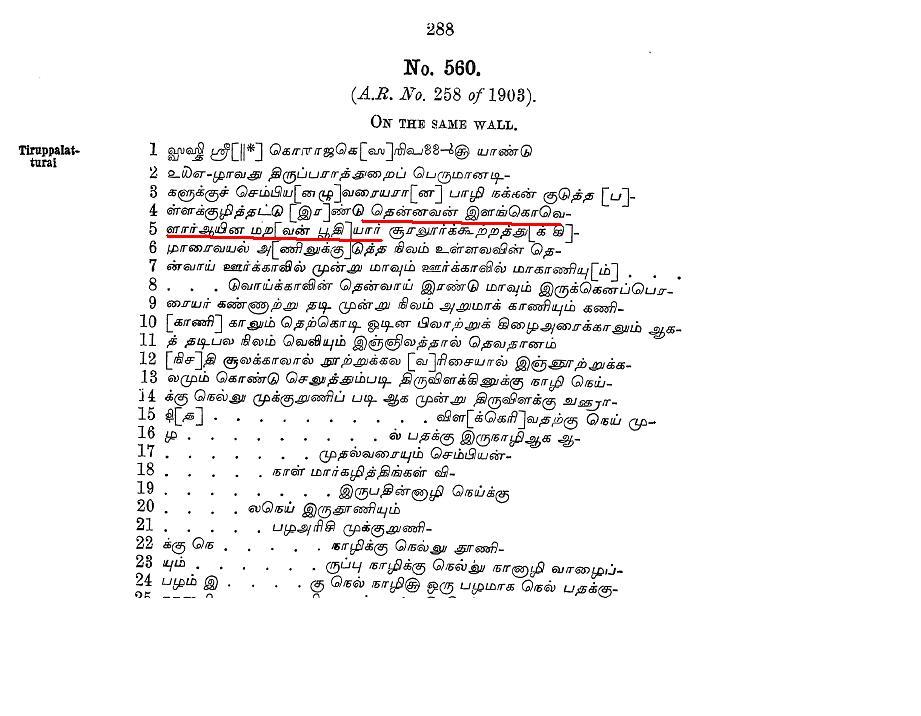 288
No. 560.
(A.R. No. 258 of 1903).
ON THE SAME WALL.
Tiruppalat-
turai
1 ஸ்வஸ்தி ஸ்ரீ[||*] கொராஜகெ[ஸ]ரிவ யாண்டு
2 திருப்பராத்துறைப் பெருமானடி-
3 களுக்குச் செம்பிய[ன்ழு]வரையரா[ன] பாழி நக்கன் குடுத்த [ப]-
4 ள்ளக்குழித்தட்டு [இர]ண்டு தென்னவன் இளங்கொவெ-
5 ளார்ஆயின மற[வன் பூதி]யார் சூரலூர்க்கூற்றத்து[க் கி]-
6 ழாரைவயல் அ[ணினுக்கு]டுத்த நிலம் உள்ளலவின் தெ-
7 ன்வாய் ஊர்க்காலில் முன்று மாவும் ஊர்க்காலில் மாகாணியு[ம்] . . .
8 . . . டுவாய்க்காலின் தென்வாய் இரண்டு மாவும் இருக்கெனப்பெர-
9 ரையர் கண்ணாற்று தடி முன்று நிலம் அறுமாக் காணியும் கணி-
10 [காணி] காலும் தெற்கொடி ஒடின பிலாற்றுக் கிழைஅரைக்காலும் ஆக-
11 த் தடிபல நிலம் வெலியும் இஞ்ஞிலத்தால் தெவதானம்
12 [நிச]தி சூலக்காலால் நூற்றுக்கல [வ]ரிசையால் இஞ்ஞூற்றுக்க-
13 லமும் கொண்டு செலுத்தும்படி திருவிளக்கினுக்கு நாழி நெய்-
14 க்கு நெல்லு முக்குறுணிப் படி ஆக முன்று திருவிளக்கு
15 . . . . . . . . . . விள[க்கெரி]வதற்கு நெய் மு-
16 ழ . . . . . . . . . . ல் பதக்கு இருநாழிஆக ஆ-
17 . . . . . . . முதல்வரையும் செம்பியன்-
18 . . . . . நாள் மார்கழித்திங்கள் வி-
19 . . . . . . . . இருபதின்னாழி நெய்க்கு
20 . . . . லநெய் இருதூணியும்
21 . . . . . பழஅரிசி முக்குறுணி-
22 க்கு நெ . . . . . நாழிக்கு நெல்லு தூணி-
23 யும் . . . . . . ருப்பு நாழிக்கு நெல்லு நானாழி வாழைப்-
24 பழம் இ . . . . கு நெல் நாழிக்கு ஒரு பழமாக நெல் பதக்கு-
25